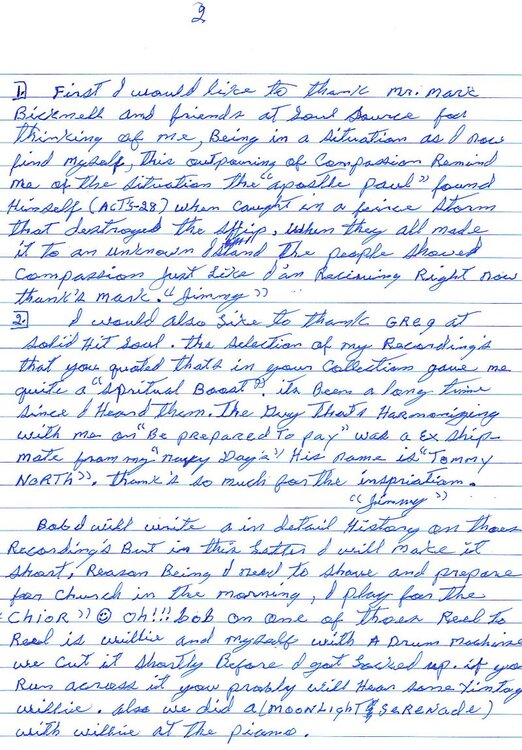 2
1. First I would like to thank Mr. Mark
Bicknell and friends at Soul Source for
thinking of me, Being in a situation as I now
find myself, this outpouring of Compassion Remind
me of the situation the "apostle paul" found
Himself (ACTS-28) when caught in a feirce storm
that destroyed the ship, when they all made
it to an unknown Island the people showed
Compassion Just Like I'am Recieving Right now
thank's mark. "Jimmy"
2. I would also like to thank GREG at
Solid Hit Soul. the selection of my Recording's
that you quoted thats in your Collection gave me
quite a "Spritual Boost". its Been a long time
since I Heard them. The Guy that's Harmonizing
with me on "Be prepared To pay" was a Ex ship-
mate from my "navy Days" His name is "Tommy
NORTH". thank's so much for the inspriation.
"Jimmy"
Bob I will write a in detail History on thoes
Recording's But in this Letter I will make it
short, Reason Being I need to shave and prepare
for Church in the morning, I play for the
CHIOR" ☺ Oh!!! bob on one of thoes Reel To
Reel is willie and myself with A Drum Machine
we Cut it shortly Before I got Locked up. if you
Run across it you prably will Hear some Vintage
willie. also we did a (MOONLIGHT SERENADE)
with willie at the piano.